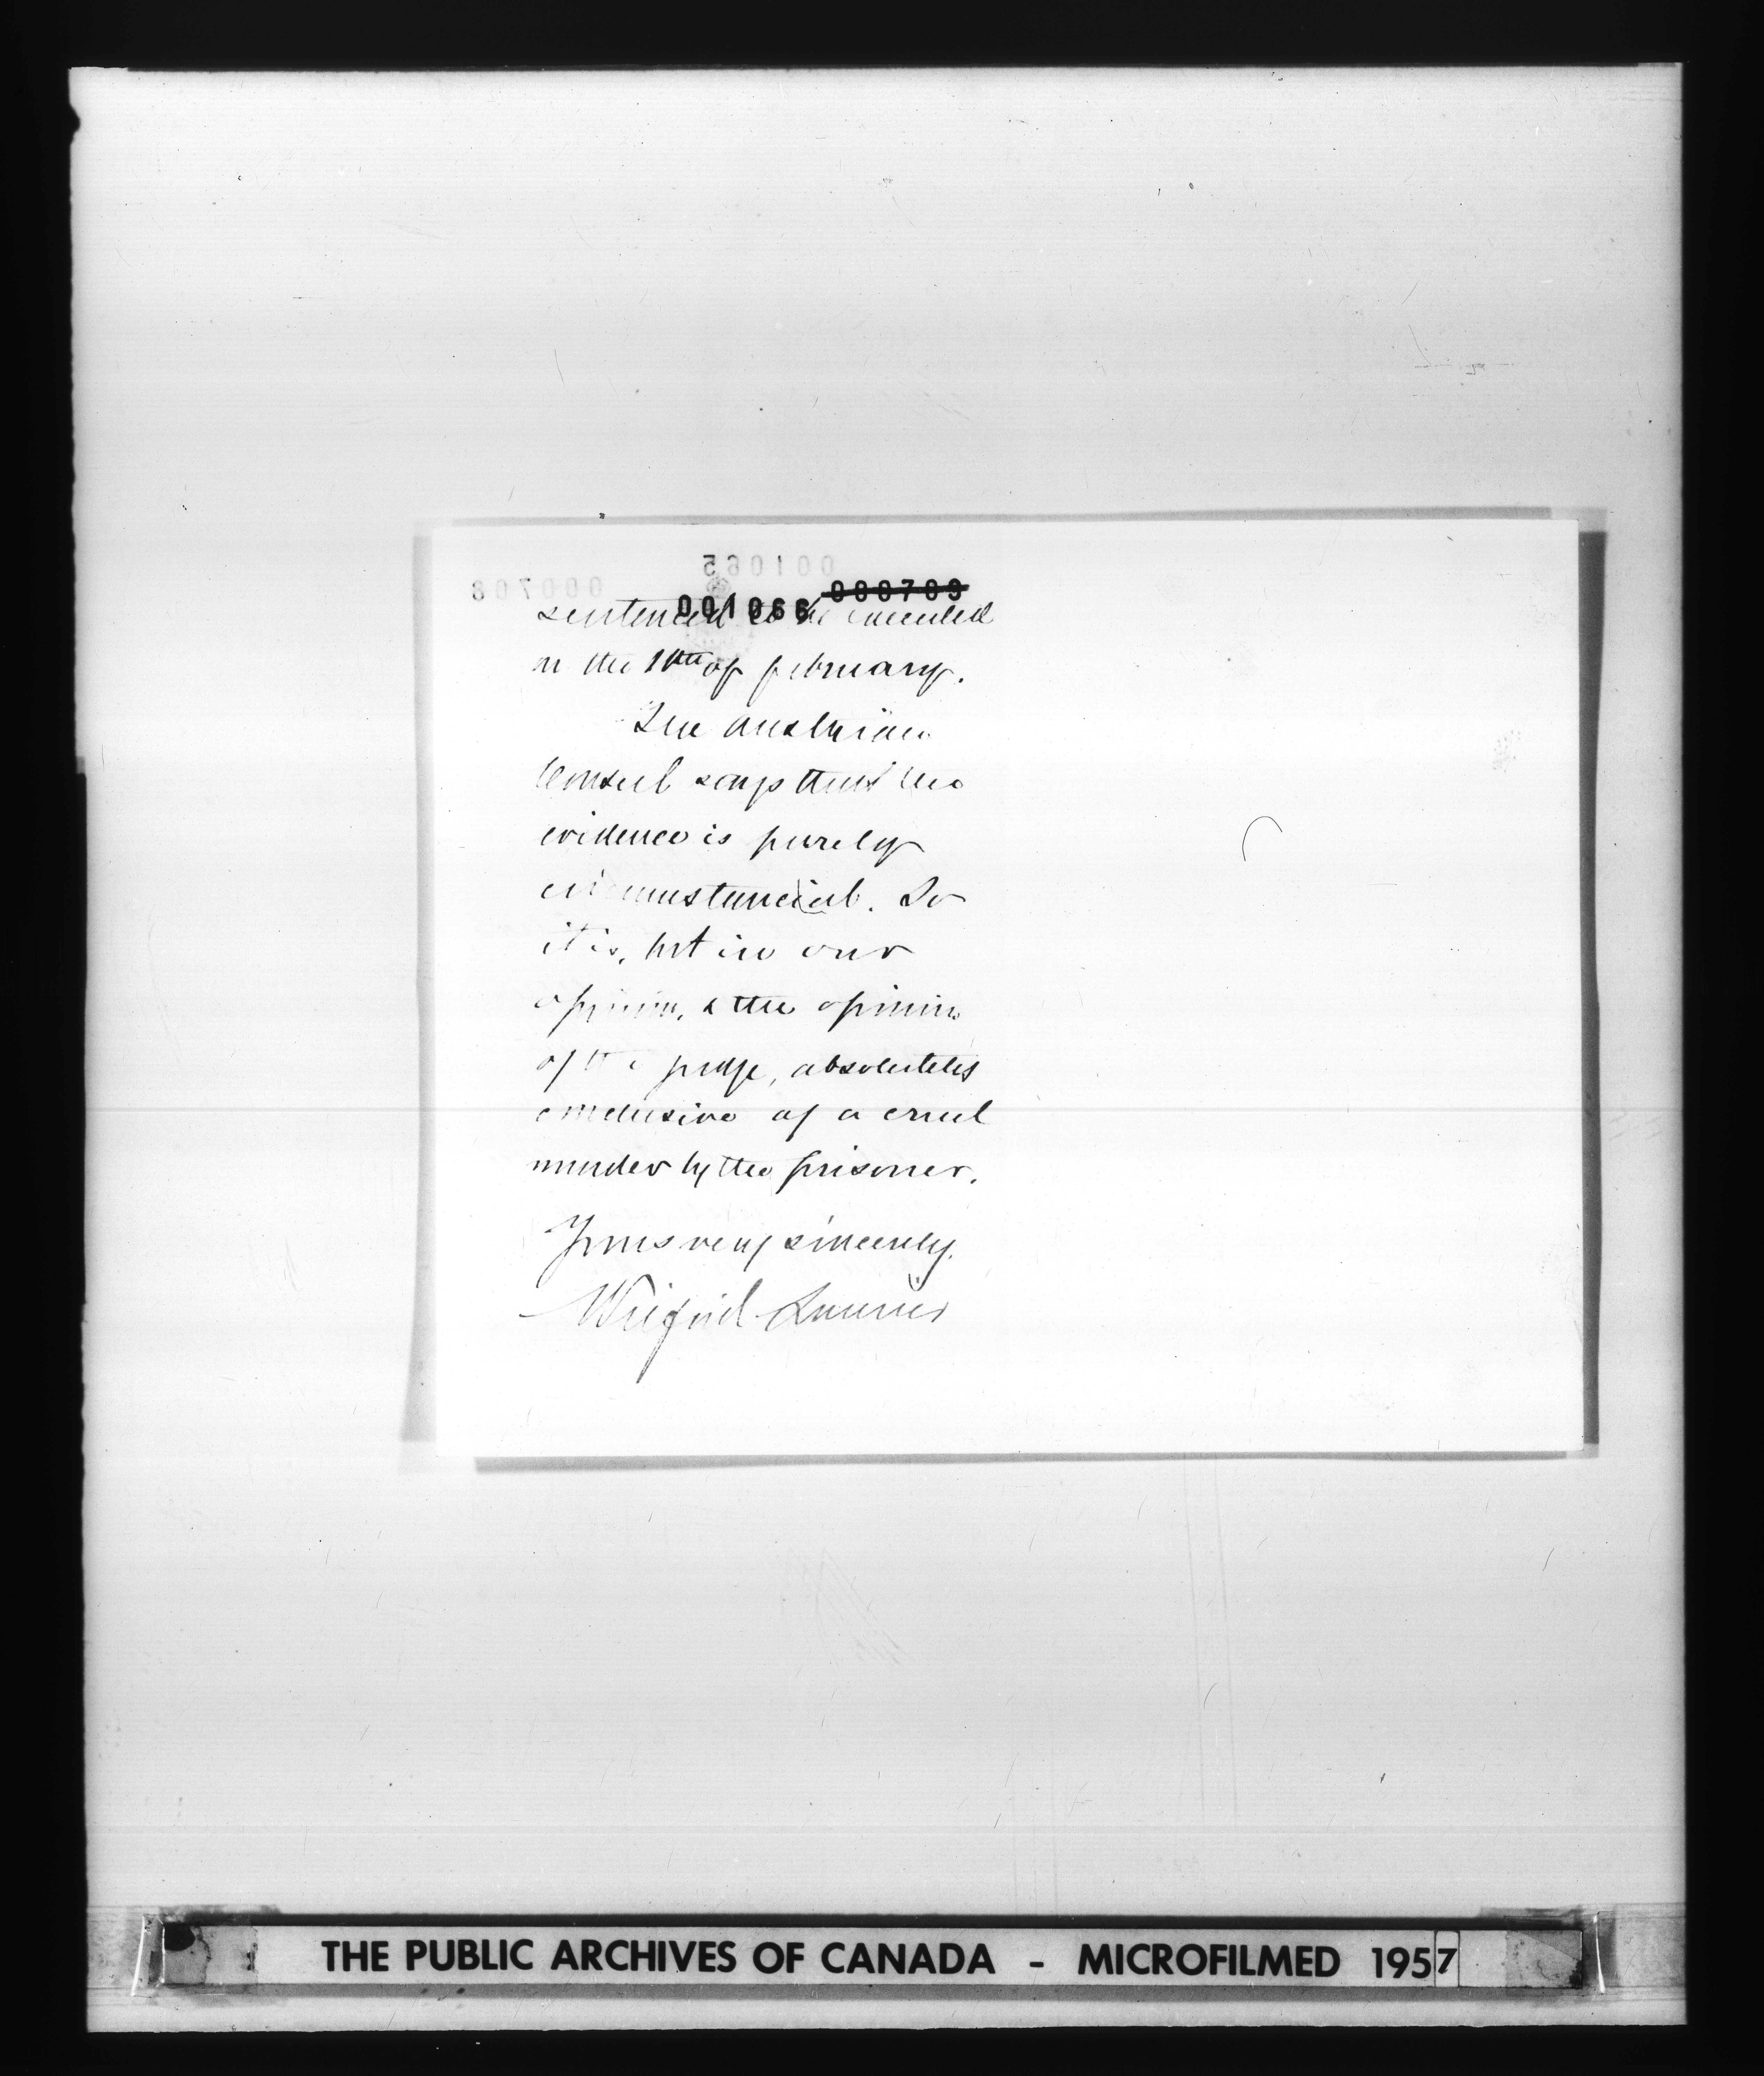 001065
000708
000709
001066
sentenced to be executed
on the 10th of february.
The Austrian
Consul says that the
evidence is purely
circumstancial. So
it is, but in our
opinion, & the opinion
of the judge, absolutely
conclusive of a cruel
murder by the prisoner.
Yours very sincerely.
Wilfrid Laurier
THE PUBLIC ARCHIVES OF CANADA - MICROFILMED 1957